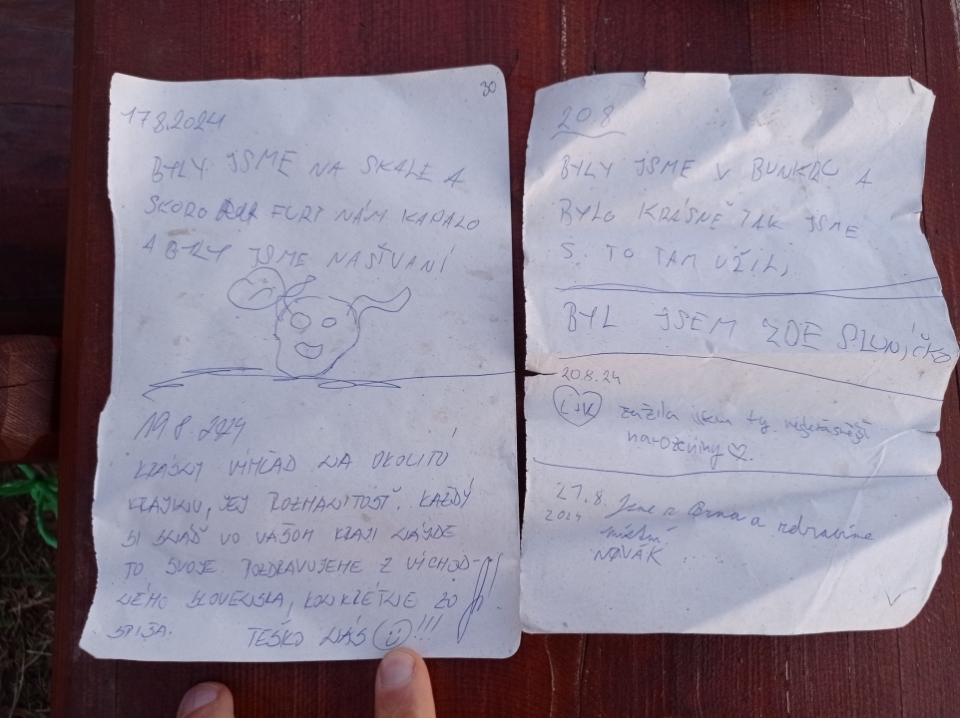 30
17.8.2024
BYLY JSME NA SKALE A
SKORO FURT NÁM KAPALO
A BYLY JSME NAŠTVANÍ
19.8.2024
KRÁSNY VÝHĽAD NA OKOLITÚ
KRAJINU, JEJ ROZMANITOSŤ. KAŽDÝ
SI SNÁĎ VO VAŠOM KRAJI NÁJDE
TO SVOJE POZDRAVUJEME Z VÝCHOD-
NÉHO SLOVENSKA, KONKRÉTNE ZO
SPIŠA. TEŠKO NÁS !!!
20.8
BYLY JSME V BUNKRU A
BYLO KRÁSNĚ TAK JSME
S. TO TAM UŽILI
BYL JSEM ZDE SLUNÍČKO
20.8.24
L+K zažila jsem ty nejkrásnější
narozeniny ♡.
21.8. Jsme z Brna a zdravíme
2024 místní
NOVÁK